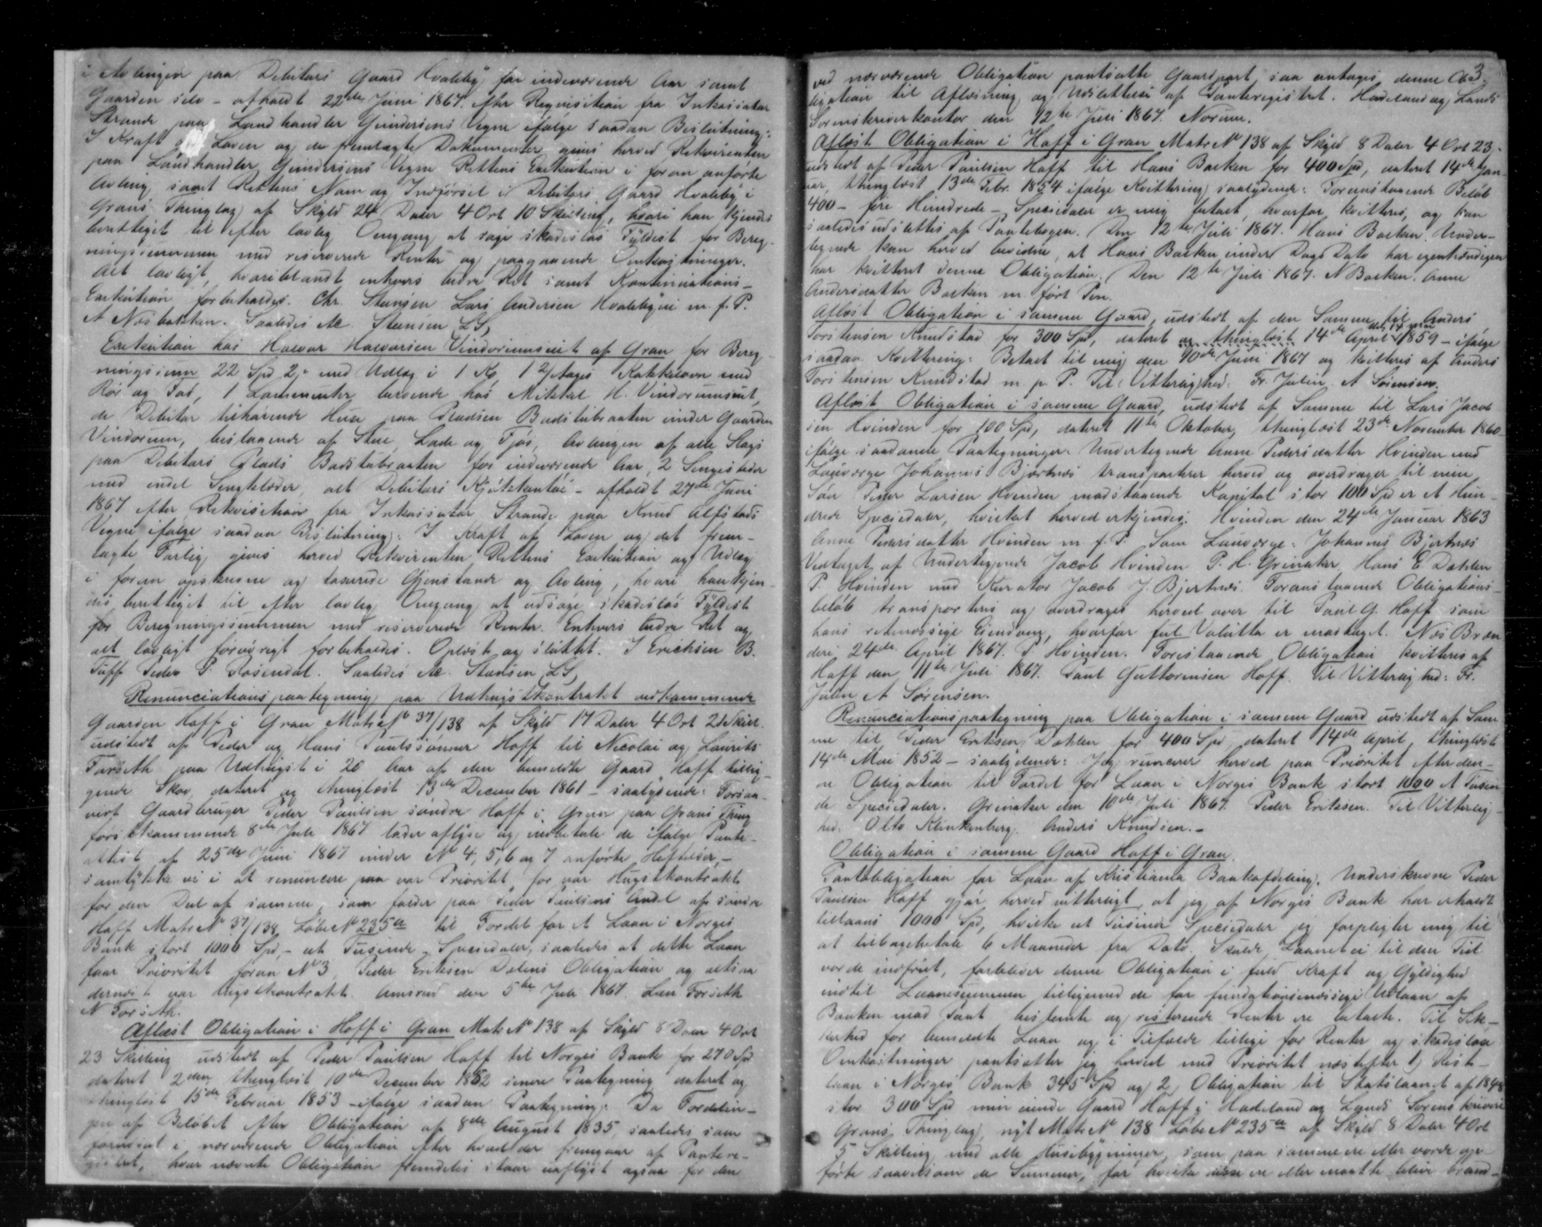 i Avlingen paa Debitors Gaard Hvaleby for indeværende Aar samt
Gaarden selv - afholdt 22de Juni 1867 efter Requisition fra Inkassator
Strande paa Landhandler Gundersens Vegne ifølge saadan Beslutning:
I Kraft af Loven og de fremlagte Dokumenter gives herved Rekvirenten
paa Landhandler Gundersens Vegne Rettens Exekution i foran anførte
Avling, samt Rettens Navn og Indførsel i Debitors Gaard Hvaleby i
Grans Thinglag af Skyld 24 Daler 4 Ort 10 Skilling, hvori han kjendes
berettiget til efter lovlig Omgang at søge skadesløs Fyldest for Bereg-
ningssummen med reserverede Renter og paagaaende Omkostninger.
Alt lovligt, hvoriblandt enhvers bedre Ret samt Kontinuations-
Exekution forbeholdes. Chr. Stensen Lars Andersen Hvalebyeie m. f. P.
A Næsbakken. Saaledes M. Stensen LS
Exekution hos Halvor Halvorsen Vindorumseiet af Gran for Bereg-
ningssum 22 Spd 2 med Udlæg i 1 Ko,
Rør og Fad, 1 beroende hos Mikkel H. Vindorumseiet,
de Debitor tilhørende Huse paa Pladsen Badstubraaten under Gaarden
Vindorum, bestaaende af Stue, Lade og Fjøs, Avlingen af alle Slags
paa Debitors Plads Badstubraaten for indeværende Aar, 2 Sengesteder
med endel Sengklæder, alt Debitors - afholdt 27de Juni
1867 efter Rekvisition fra Inkassator Strande paa Knud Alfstads
Vegne ifølge saadan Beslutning: I Kraft af Loven og det frem-
lagte Forlig gives herved Rekvirenten Rettens Exekution og Udlæg
i foran opskrevne og taxerede Gjenstande og Avling, hvori han kjen-
des berettiget til efter lovlig Omgang at udsøge skadesløs Fyldest
for Beregningssummen med reserverede Renter. Enhvers bedre Ret og
alt lovligt forøvrigt forbeholdes. Oplæst og sluttet. J Erichsen B.
Tuff Peder P. Rosendal. Saaledes M. Stensen LS
Renunciationspaategning paa Udhugstkontrakt vedkommende
Gaarden Hoff i Gran Matr No 37/138 af Skyld 17 Daler 4 Ort Skill.
udstedt af Peder og Hans Paulssønner Hoff til Nicolai og Laurits
Forseth paa Udhugst i 20 Aar af den bemeldte Gaard Hoff tillig-
gende Skov, dateret og thinglæst 13de December 1861 - saalydende: Forsaa-
vidt Gaardbruger Peder Paulsen søndre Hoff i Gran paa Grans Thing
førstkommende 8de Juli 1867 lader aflyse og indbetale de ifølge Pante-
attest af 25de Juni 1867 under No 4, 5, 6 og 7 anførte Heftelser, -
samtykke vi i at renuncere paa vor Prioritet for vor Hugstkontrakt
for den Del af samme, som falder paa Peder Paulsens Andel af søndre
Hoff Matr No 37/138, Løbe No 235a til Fordel for et Laan i Norges
Bank stort 1000 Spd - et Tusende Speciedaler, saaledes at dette Laan
faar Prioritet foran No 3, Peder Eriksen Dølens Obligation og altsaa
dernæst vor Hugstkontrakt. Amsrud den 5te Juli 1867. Lau Forseth
N Forseth.
Aflæst Obligation i Hoff i Gran Matr No 138 af Skyld 8 Daler 4 Ort
23 Skilling udstedt af Peder Paulsen Hoff til Norges Bank for 270 Spd
dateret 2den thinglæst 10de December 1852 senere Paategning dateret og
thinglæst 15de Februar 1853 - ifølge saadan Paategning: Da Fordelin-
gen af Beløbet efter Obligation af 8de August 1835, saaledes som
forøvrigt i nærværende Obligation efter hvad der fremgaar af Pantere-
gistret, hvor nævnte Obligation fremdeles staar uaflyst ogsaa for den
3.
ved nærværende Obligation pantsatte Gaardpart, saa antages denne Ob-
ligation til Aflæsning og Udslettelse af Panteregistret. Hadeland og Lands
Sorenskriverkontor den 12te Juli 1867. Norum.
Aflæst Obligation i Hoff i Gran Matr No 138 af Skyld 8 Daler 4 Ort 23
udstedt af Peder Paulsen Hoff til Hans Bækken for 400 Spd, dateret 14de Jan-
uar, thinglæst 13de Febr. 1854 ifølge Kvittering saalydende: Foranstaaende Beløb
400 - fire Hundrede - Speciedaler er mig betalt, hvorfor kvitteres, og kan
saaledes udslettes af Pantebogen. Den 12te Juli 1867. Hans Bækken. Under-
tegnede kan herved bevidne, at Hans Bækken under Dags Dato har egenhændigen
har kvitteret denne Obligation. Den 12te Juli 1867. N Bækken. Anne
Andersdatter Bækken m. ført Pen.
Aflæst Obligation i samme Gaard, udstedt af den Samme til Anders
Torstensen Knudstad for 300 Spd, dateret og thinglæst 14de April 1859 - ifølge
saadan Kvittering: Betalt til mig den 10de Juni 1867 og kvitteres af Anders
Torstensen Knudstad m. p. P. Til Vitterlighed: Fr. Julin, A Sørensen.
Aflæst Obligation i samme Gaard, udstedt af Samme til Lars Jacob-
sen Hvinden for 100 Spd, dateret 11te Oktober, thinglæst 23de November 1860
ifølge saadanne Paategninger: Undertegnede Anne Pedersdatter Hvinden med
Laugværge Johannes Bjertnæs transporterer herved og overdrager til min
Søn Peder Larsen Hvinden modstaaende Kapital stor 100 Spd er Et Hun-
drede Speciedaler, hvilket herved erkjendes. Hvinden den 24de Januar 1863
Anne Pedersdatter Hvinden m. f. P. Som Laugværge: Johannes Bjertnæs
Vedtaget af Undertegnede Jacob Hvinden P. H. Grinaker, Hans E Dahlen
P. Hvinden med Kurator Jacob J. Bjertnæs. Foranstaaende Obligations-
beløb transporteres og overdrages herved over til Paul G. Hoff som
hans retmæssige Eiendom, hvorfor fuld Valuta er modtaget. Næs Bræn-
deri 24de April 1867. P Hvinden. Forestaaende Obligation kvitteres af
Hoff den 11te Juli 1867. Paul Guttormsen Hoff. Til Vitterlighed: Fr.
Julin A Sørensen.
Renunciationspaategning paa Obligation i samme Gaard udstedt af Sam-
me til Peder Eriksen Dahlen for 400 Spd, dateret 14de April, thinglæst
14de Mai 1852 - saalydende: Jeg renuncerer herved paa Prioritet efter den-
ne Obligation til Fordel for Laan i Norges Bank stort 1000 Et Tusen-
de Speciedaler. Grinaker den 10de Juli 1867. Peder Eriksen. Til Vitterlig-
hed: Otto Klinkenberg. Anders Knudsen. -
Obligation i samme Gaard Hoff i Gran.
Pantobligation for Laan af Kristiania Bankafdeling. Underskrevne Peder
Paulsen Hoff gjør herved vitterligt, at jeg af Norges Bank har erholdt
tillaans 1000 Spd, hvilke et Tusinde Speciedaler jeg forpligter mig til
at tilbagebetale 6 Maaneder fra Dato. Skulde Laanet ei til den Tid
vorde indfriet, forbliver denne Obligation i fuld Kraft og Gyldighed
indtil Laanesummen tilligemed de for fundationsmæssige Udlaan af
Banken mod Pant bestemte og resterende Renter ere betalte. Til Sik-
kerhed for bemeldte Laan og i Tilfælde tillige for Renter og skadesløse
Omkostninger pantsætter jeg herved med Prioritet næst efter 1) Rest-
laan i Norges Bank 345 Spd og 2) Obligation til Statslaanet af 1848
stor 300 Spd min eiende Gaard Hoff i Hadeland og Lands Sorenskriveri
Grans Thinglag, nyt Matr No 138 Løbe No 235a af Skyld 8 Daler 4 Ort
5 Skilling med alle Husebygninger, som paa samme ere eller vorde op-
førte saavelsom de Summer, for hvilke disse ere eller maatte blive brand-